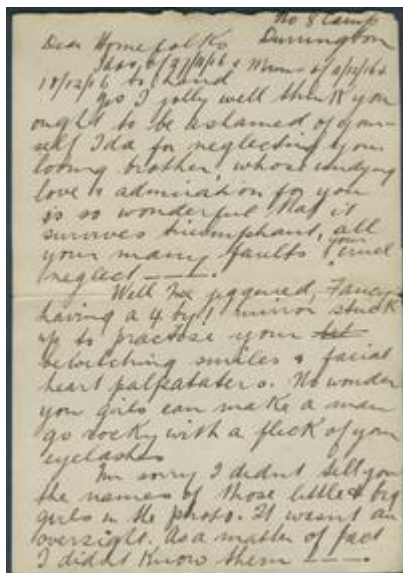 No 8 Camp
Durrington
Dear Home folks
Idas of 27/11/16 & Mums of 2/12/16 &
18/12/16 to hand
Yes I jolly well think you
ought to be ashamed of your-
self Ida for neglecting your
loving brother, whose undying
love & admiration for you
is so wonderful that it
survives triumphant, all
your many faults & your cruel
neglect —— .
Well I'm jiggered, Fancy
having a 4 by 1 mirror stuck
up to practise your
bewitching smiles & facial
heart palpatators. No wonder
you girls can make a man
go rocky with a flick of your
eyelashes
I'm sorry I didn't tell you
the names of those little & big
girls in the photo. It wasn't an
oversight. As a matter of fact
I didn't know them —— .